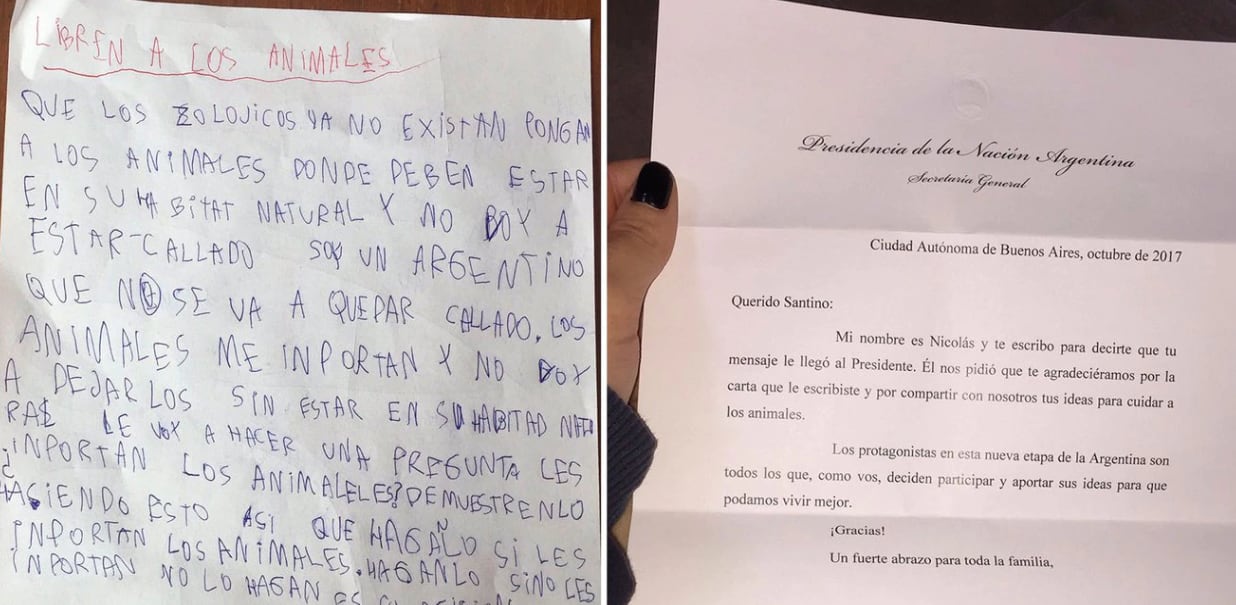 LIBREN A LOS ANIMALES
QUE LOS ZOLOJICOS YA NO EXISTAN PONGAN
A LOS ANIMALES DONDE DEBEN ESTAR
EN SU HABITAT NATURAL Y NO BOY A
ESTAR-CALLADO SOY UN ARGENTINO
QUE NO SE VA A QUEDAR CALLADO. LOS
ANIMALES ME INPORTAN Y NO BOY
A DEJARLOS SIN ESTAR EN SU HABITAD NATU
RAL LE VOY A HACER UNA PREGUNTA LES
¿INPORTAN LOS ANIMALELES? DEMUESTRENLO
HASIENDO ESTO ASI QUE HAGAÑLO SI LES
INPORTAN LOS ANIMALES. HAGANLO SINO LES
INPORTAN NO LO HAGAN ES
Presidencia de la Nación Argentina
Secretaría General
Ciudad Autónoma de Buenos Aires, octubre de 2017
Querido Santino:
Mi nombre es Nicolás y te escribo para decirte que tu
mensaje le llegó al Presidente. Él nos pidió que te agradeciéramos por la
carta que le escribiste y por compartir con nosotros tus ideas para cuidar a
los animales.
Los protagonistas en esta nueva etapa de la Argentina son
todos los que, como vos, deciden participar y aportar sus ideas para que
podamos vivir mejor.
¡Gracias!
Un fuerte abrazo para toda la familia,